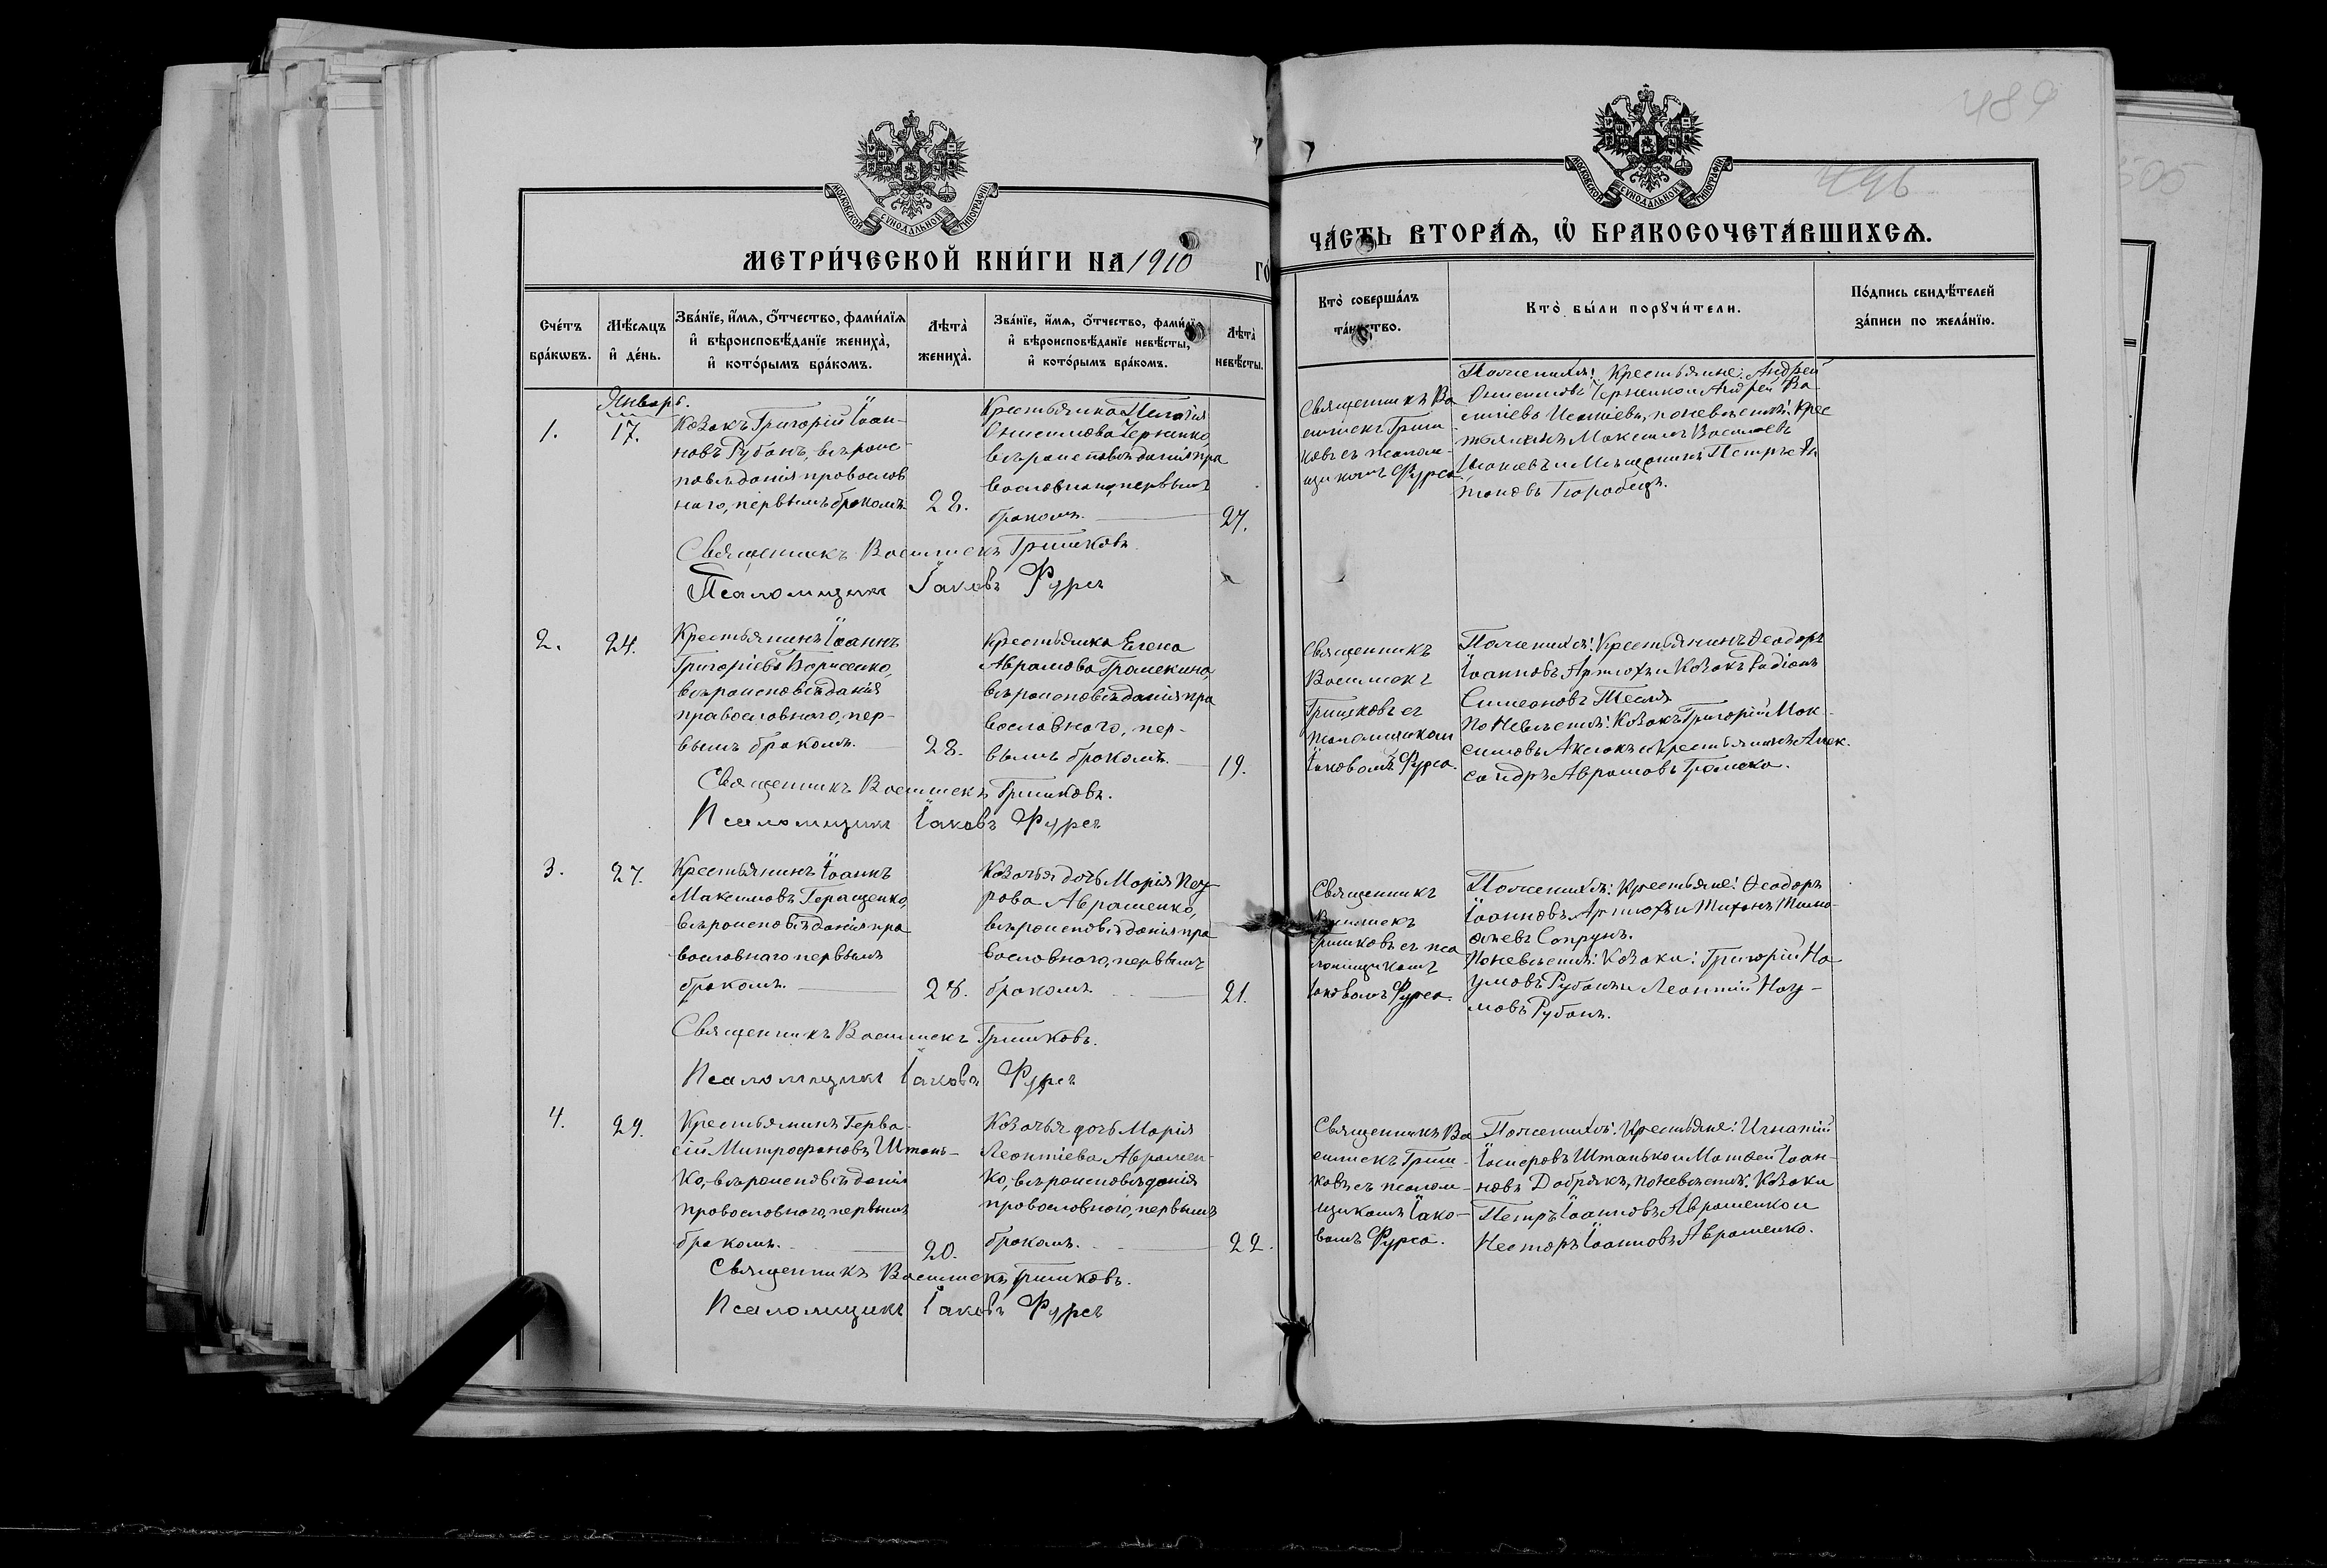 489
496
500
МОСКОВСКОЙ СУНОДАЛЬНОЙ ТИПОГРАФІИ
МОСКОВСКОЙ СУНОДАЛЬНОЙ ТИПОГРАФІИ
МЕТРИ́ЧЕСКОЙ КНИ́ГИ НА 1910 ГО́
ЧА́СТЬ ВТОРА́Ѧ, Ѡ҆ БРАКОСОЧЕТА́ВШИХСѦ.
Сче́тъ бра́кѡвъ.
Мѣ́сѧцъ и҆ де́нь.
Зва́нїе, и҆́мѧ, ѻ҆́тчество, фами́лїѧ
и҆ вѣроисповѣ́данїе жениха̀,
и҆ кото́рымъ бра́комъ.
Лѣта̀ жениха̀.
Зва́нїе, и҆́мѧ, ѻ҆́тчество, фами́лїѧ
и҆ вѣроисповѣ́данїе невѣ́сты,
и҆ кото́рымъ бра́комъ.
Лѣта̀ невѣ́сты.
Кто̀ соверша́лъ
та́инство.
Кто̀ бы́ли порꙋчи́тели.
По́дпись свидѣ́телей
за́писи по жела́нїю.
Январь.
1.
17.
Козакъ Григорій Іоан-
новъ Рубанъ, вѣроис
повѣданія православ
наго, первымъ бракомъ
28.
Крестьянка Пелагія
Онисимова Черненко,
вѣроисповѣданія пра
вославнаго, первымъ
бракомъ.
27.
Священникъ Ва
силискъ Гриш
ковъ съ псалом-
щикомъ Фурса
По женихѣ: Крестьяне: Андрей
Онисимовъ Черненко и Андрей Ва-
по невѣстѣ: Крес
тьянинъ Максимъ Васильевъ
и Мѣщанинъ Петръ Ан
тоновъ
Священникъ Василискъ Гришковъ
Псаломщикъ Іаковъ Фурса
2.
24.
Крестьянинъ Іоаннъ
Григоріевъ Борисенко,
вѣроисповѣданія
православнаго, пер-
вымъ бракомъ.
28.
Крестьянка Елена
Аврамова Громекина,
вѣроисповѣданія пра
вославнаго, пер-
вымъ бракомъ.
19.
Священникъ
Василискъ
Гришковъ съ
псаломщикомъ
Іаковомъ Фурса.
По женихѣ: Крестьянинъ Ѳеодоръ
Іоанновъ Артюхъ и Козакъ Радіонъ
Симеоновъ Тесля
По невѣстѣ: Козакъ Григорій Мак-
симовъ и крестьянинъ Алек-
сандръ Аврамовъ Громека.
Священникъ Василискъ Гришковъ.
Псаломщикъ Іаковъ Фурса
3.
27.
Крестьянинъ Іоаннъ
Максимовъ Геращенко,
вѣроисповѣданія пра
вославнаго первымъ
бракомъ.
28.
Козачья дочь Марія Пет-
рова Авраменко,
вѣроисповѣданія пра
вославнаго, первымъ
бракомъ
21.
Священникъ
Василискъ
Гришковъ съ пса
ломщикомъ
Іаковомъ Фурса.
По женихѣ: Крестьяне: Ѳеодоръ
Іоанновъ Артюхъ и Тихонъ Тимо-
ѳеевъ Сопрунъ.
По невѣстѣ: Козаки: Григорій На
умовъ Рубанъ и Леонтій Нау-
мовъ Рубанъ.
Священникъ Василискъ Гришковъ.
Псаломщикъ Іаковъ Фурса
4.
29.
Крестьянинъ Герва-
сій Митрофановъ Штань-
ко, вѣроисповѣданія
православнаго, первымъ
бракомъ.
20.
Козачья дочь Марія
Леонтіева Аврамен-
ко, вѣроисповѣданія
православнаго, первымъ
бракомъ.
22.
Священникъ Ва
силискъ Гриш-
ковъ съ псалом-
щикомъ Іако-
вомъ Фурса.
По женихѣ: Крестьяне: Игнатій
Іосифовъ Штанько и Матѳей Іоан-
новъ Добрякъ, по невѣстѣ: Козаки
Петръ Іоанновъ Авраменко и
Несторъ Іоанновъ Авраменко.
Священникъ Василискъ Гришковъ.
Псаломщикъ Іаковъ Фурса